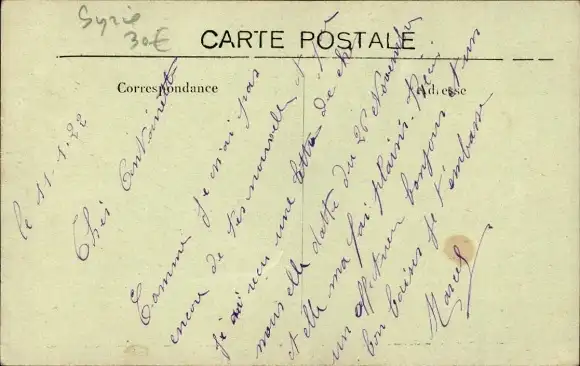 Syrie
30€
CARTE POSTALE
Correspondance
Adresse
le 11.1.22
Cher Antoinette
Comme je n'ai pas
encore de tes nouvelle et
j'ai reçu une lettre de
mais elle datte du 26 Novembre
et elle ma fai plaisir. Reçoi
un affectueu bonjour et un
bon baiser je t'embrasse
Marcel